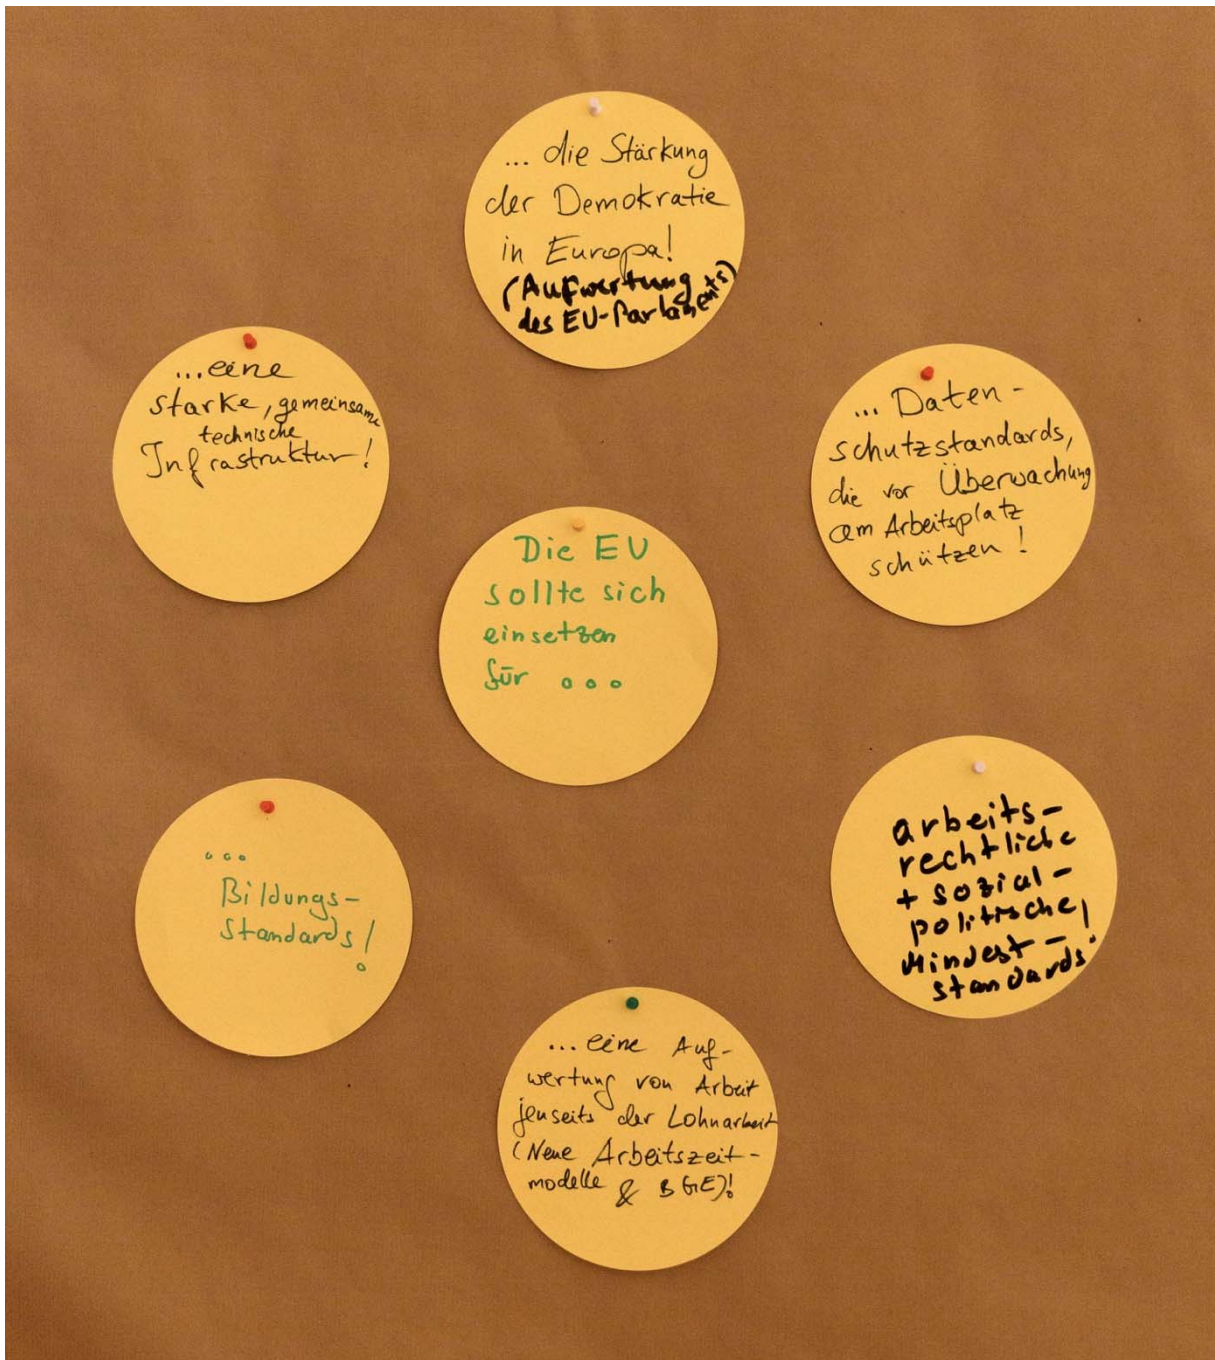 ... die Stärkung
der Demokratie
in Europa!
(Aufwertung
des EU-Parlaments)
...eine
starke, gemeinsame
technische
Infrastruktur!
... Daten-
schutzstandards,
die vor Überwachung
am Arbeitsplatz
schützen!
Die EU
sollte sich
einsetzen
für ...
...
Bildungs-
Standards!
arbeits-
rechtliche
+ sozial-
politische
Mindest-
standards!
... eine Auf-
wertung von Arbeit
jenseits der Lohnarbeit
(Neue Arbeitszeit-
modelle & BGE)!